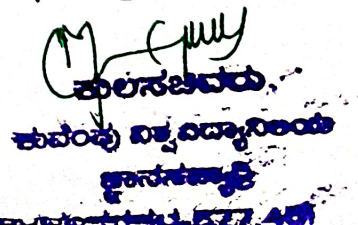 ಕುಲಸಚಿವರು,
ಕುವೆಂಪು ವಿಶ್ವವಿದ್ಯಾನಿಲಯ
ಜ್ಞಾನಸಹ್ಯಾದ್ರಿ
577 451